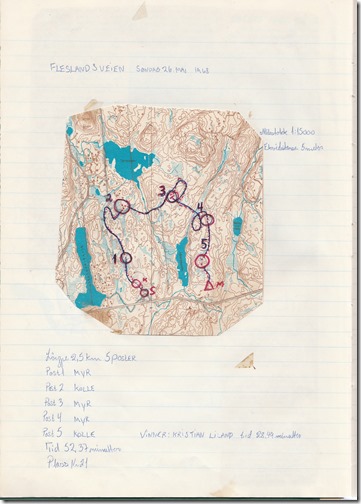 FLESLANDSVEIEN SØNDAG 26 MAI 1968
1:15000
Ekvidistanse 5 meter
2
3
4
1
5
S
M
Løngde 2,5 km 5 POSTER
Post 1 MYR
Post 2 KOLLE
Post 3 MYR
Post 4 MYR
Post 5 KOLLE VINNER: KRISTIAN LILAND tid 28,49 minutter
Tid 52,37 minutter
Plass Nr. 21